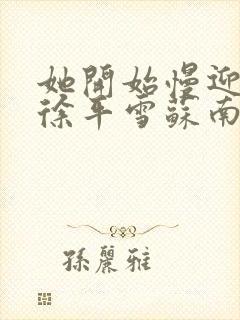 她開始慢迎
徐平雪蘇南
孫麗雅